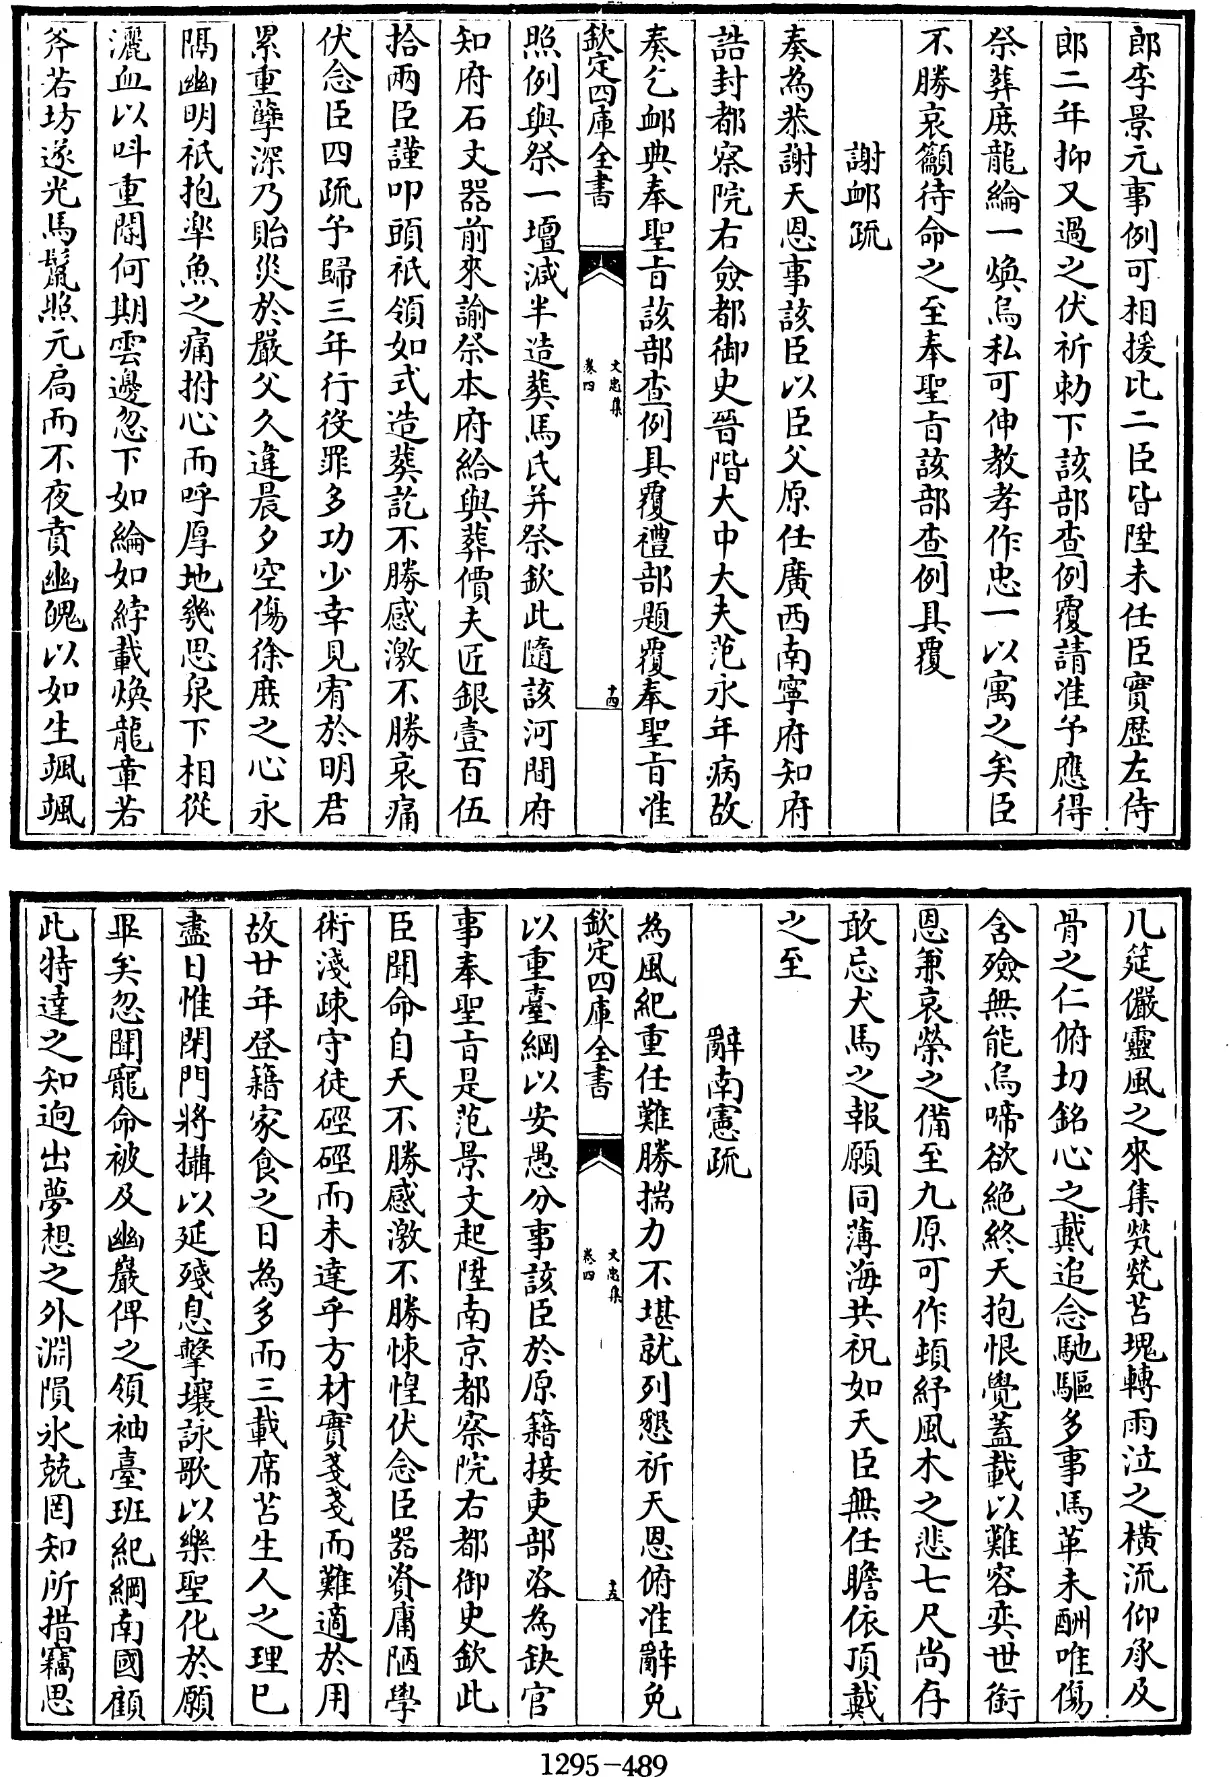 郎李景元事例可相援比二臣皆陞未任臣實歷左侍
郎二年抑又過之伏祈勅下該部查例覆請准予應得
祭葬庶龍綸一煥烏私可伸教孝作忠一以寓之矣臣
不勝哀籲待命之至奉聖旨該部查例具覆
謝䘏疏
奏為恭謝天恩事該臣以臣父原任廣西南寧府知府
誥封都察院右僉都御史晉階大中大夫范永年病故
奏乞䘏典奉聖旨該部查例具覆禮部題覆奉聖旨准
欽定四庫全書
文忠集
卷四
十四
照例與祭一壇減半造葬馬氏并祭欽此隨該河間府
知府石文器前來諭祭本府給與葬價夫匠銀壹百伍
拾兩臣謹叩頭祇領如式造葬訖不勝感激不勝哀痛
伏念臣四疏予歸三年行役罪多功少幸見宥於明君
累重孽深乃貽災於嚴父久違晨夕空傷徐庶之心永
隔幽明祇抱臯魚之痛拊心而呼厚地幾思泉下相從
灑血以呌重閽何期雲邊忽下如綸如綍載煥龍章若
斧若坊遂光馬鬛照元扃而不夜賁幽魄以如生颯颯
几筵儼靈風之來集煢煢苫塊轉雨泣之橫流仰承及
骨之仁俯切銘心之戴追念馳驅多事馬革未酬唯傷
含殮無能烏啼欲絶終天抱恨覺蓋載以難容奕世銜
恩兼哀榮之備至九原可作頓紓風木之悲七尺尚存
敢忘犬馬之報願同薄海共祝如天臣無任瞻依頂戴
之至
辭南憲疏
為風紀重任難勝揣力不堪就列懇祈天恩俯准辭免
欽定四庫全書
文忠集
卷四
十五
以重臺綱以安愚分事該臣於原籍接吏部咨為缺官
事奉聖旨是范景文起陞南京都察院右都御史欽此
臣聞命自天不勝感激不勝悚惶伏念臣器資庸陋學
術淺疎守徒硜硜而未達乎方材實戔戔而難適於用
故廿年登籍家食之日為多而三載席苫生人之理已
盡日惟閉門將攝以延殘息擊壤詠歌以樂聖化於願
畢矣忽聞寵命被及幽巖俾之領袖臺班紀綱南國顧
此特達之知逈出夢想之外淵隕氷兢罔知所措竊思
1295-489